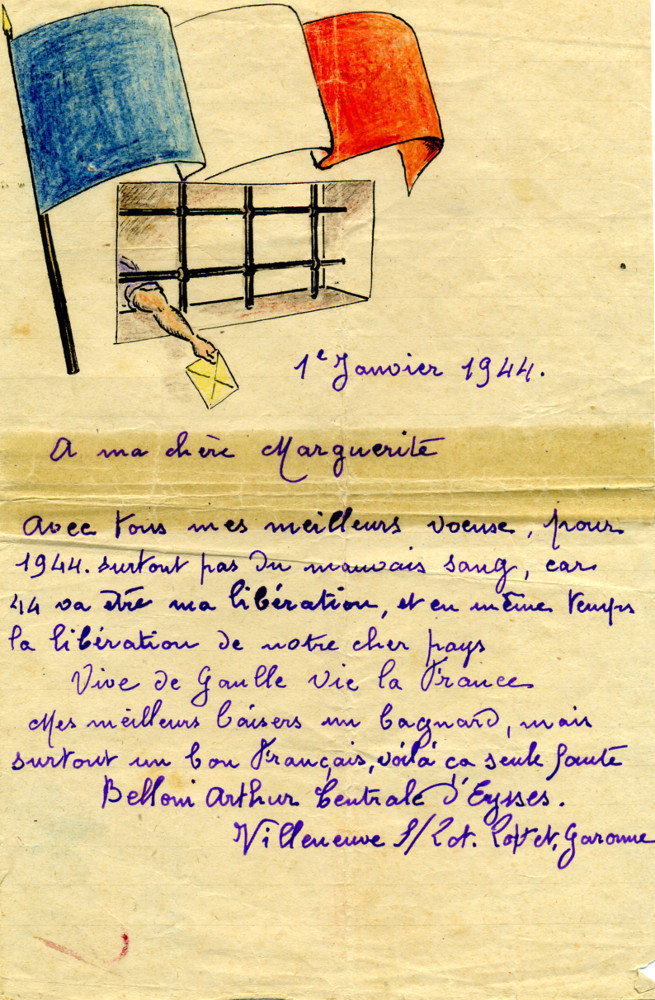 1e Janvier 1944.
A ma chère Marguerite
Avec tous mes meilleurs voeuse, pour
1944. surtout pas du mauvais sang, car
44 va être ma libération, et en même temps
la libération de notre cher pays
Vive de Gaulle vie la France
Mes meilleurs baisers un bagnard, mais
surtout un bon Français, voilà ça seule faute
Belloni Arthur Centrale d'Eysses.
Villeneuve S/Lot. Lot et, Garonne